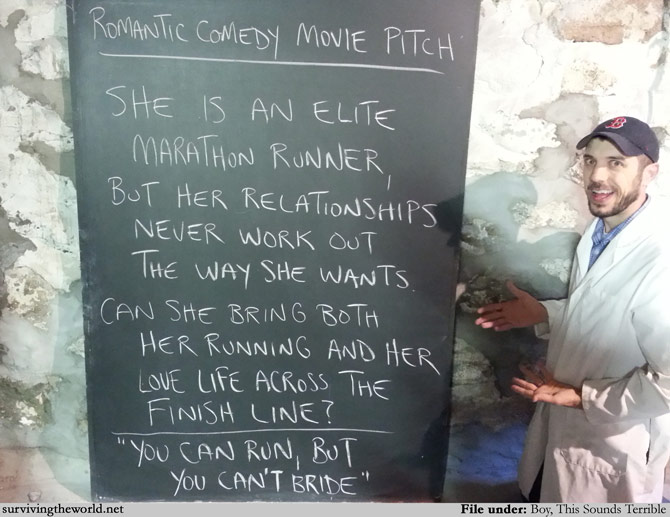 ROMANTIC COMEDY MOVIE PITCH
SHE IS AN ELITE
MARATHON RUNNER,
BUT HER RELATIONSHIPS
NEVER WORK OUT
THE WAY SHE WANTS.
CAN SHE BRING BOTH
HER RUNNING AND HER
LOVE LIFE ACROSS THE
FINISH LINE?
"YOU CAN RUN, BUT
YOU CAN'T BRIDE"
B
survivingtheworld.net
File under: Boy, This Sounds Terrible